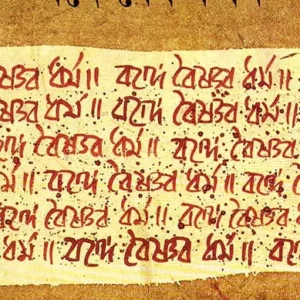 ষ্ণব ধর্ম॥ বন্দে বৈষ্ণব ধর্ম॥
ষ্ণব ধর্ম॥ বন্দে বৈষ্ণব ধর্ম॥
ন্দে বৈষ্ণব ধর্ম॥ বন্দে বৈষ্ণব
র্ম॥ বন্দে বৈষ্ণব ধর্ম॥ বন্দে বৈ
বৈষ্ণব ধর্ম॥ বন্দে বৈষ্ণব
ধর্ম॥ বন্দে বৈষ্ণব ধর্ম॥ বন্দে